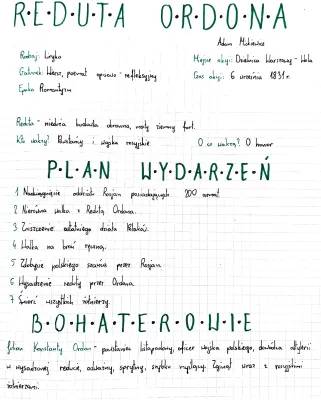 R·E·D·U·T·A O·R·D·O·N·A
Adam Mickiewicz
Rodzaj: Liryka
Miejsce akcji: Dzielnica Warszawy - Wola
Gatunek: Wiersz, poemat opisowo - refleksyjny
Czas akcji: 6 września 1831 r.
Epoka: Romantyzm
Reduta - niewielka budowla obronna, mały ziemny fort.
Kto walczy? Powstańcy i wojska rosyjskie.
O co walczą? O honor
P·L·A·N W·Y·D·A·R·Z·E·Ń
1 Nadciągnięcie oddziału Rosjan posiadających 200 armat
2 Nierówna walka z Redutą Ordona.
3 Zniszczenie ostatniego działa Polaków.
4 Walka na broń ręczną.
5 Zdobycie polskiego szańca przez Rosjan
6 Wysadzenie reduty przez Ordona.
7 Śmierć wszystkich żołnierzy.
B·O·H·A·T·E·R·O·W·I·E
Julian Konstanty Ordon - powstaniec listopadowy, oficer wojska polskiego, dowódca artylerii
w wysadzonej reducie, odważny, sprytny, szybko myślący. Zginął wraz z rosyjskimi
żołnierzami.